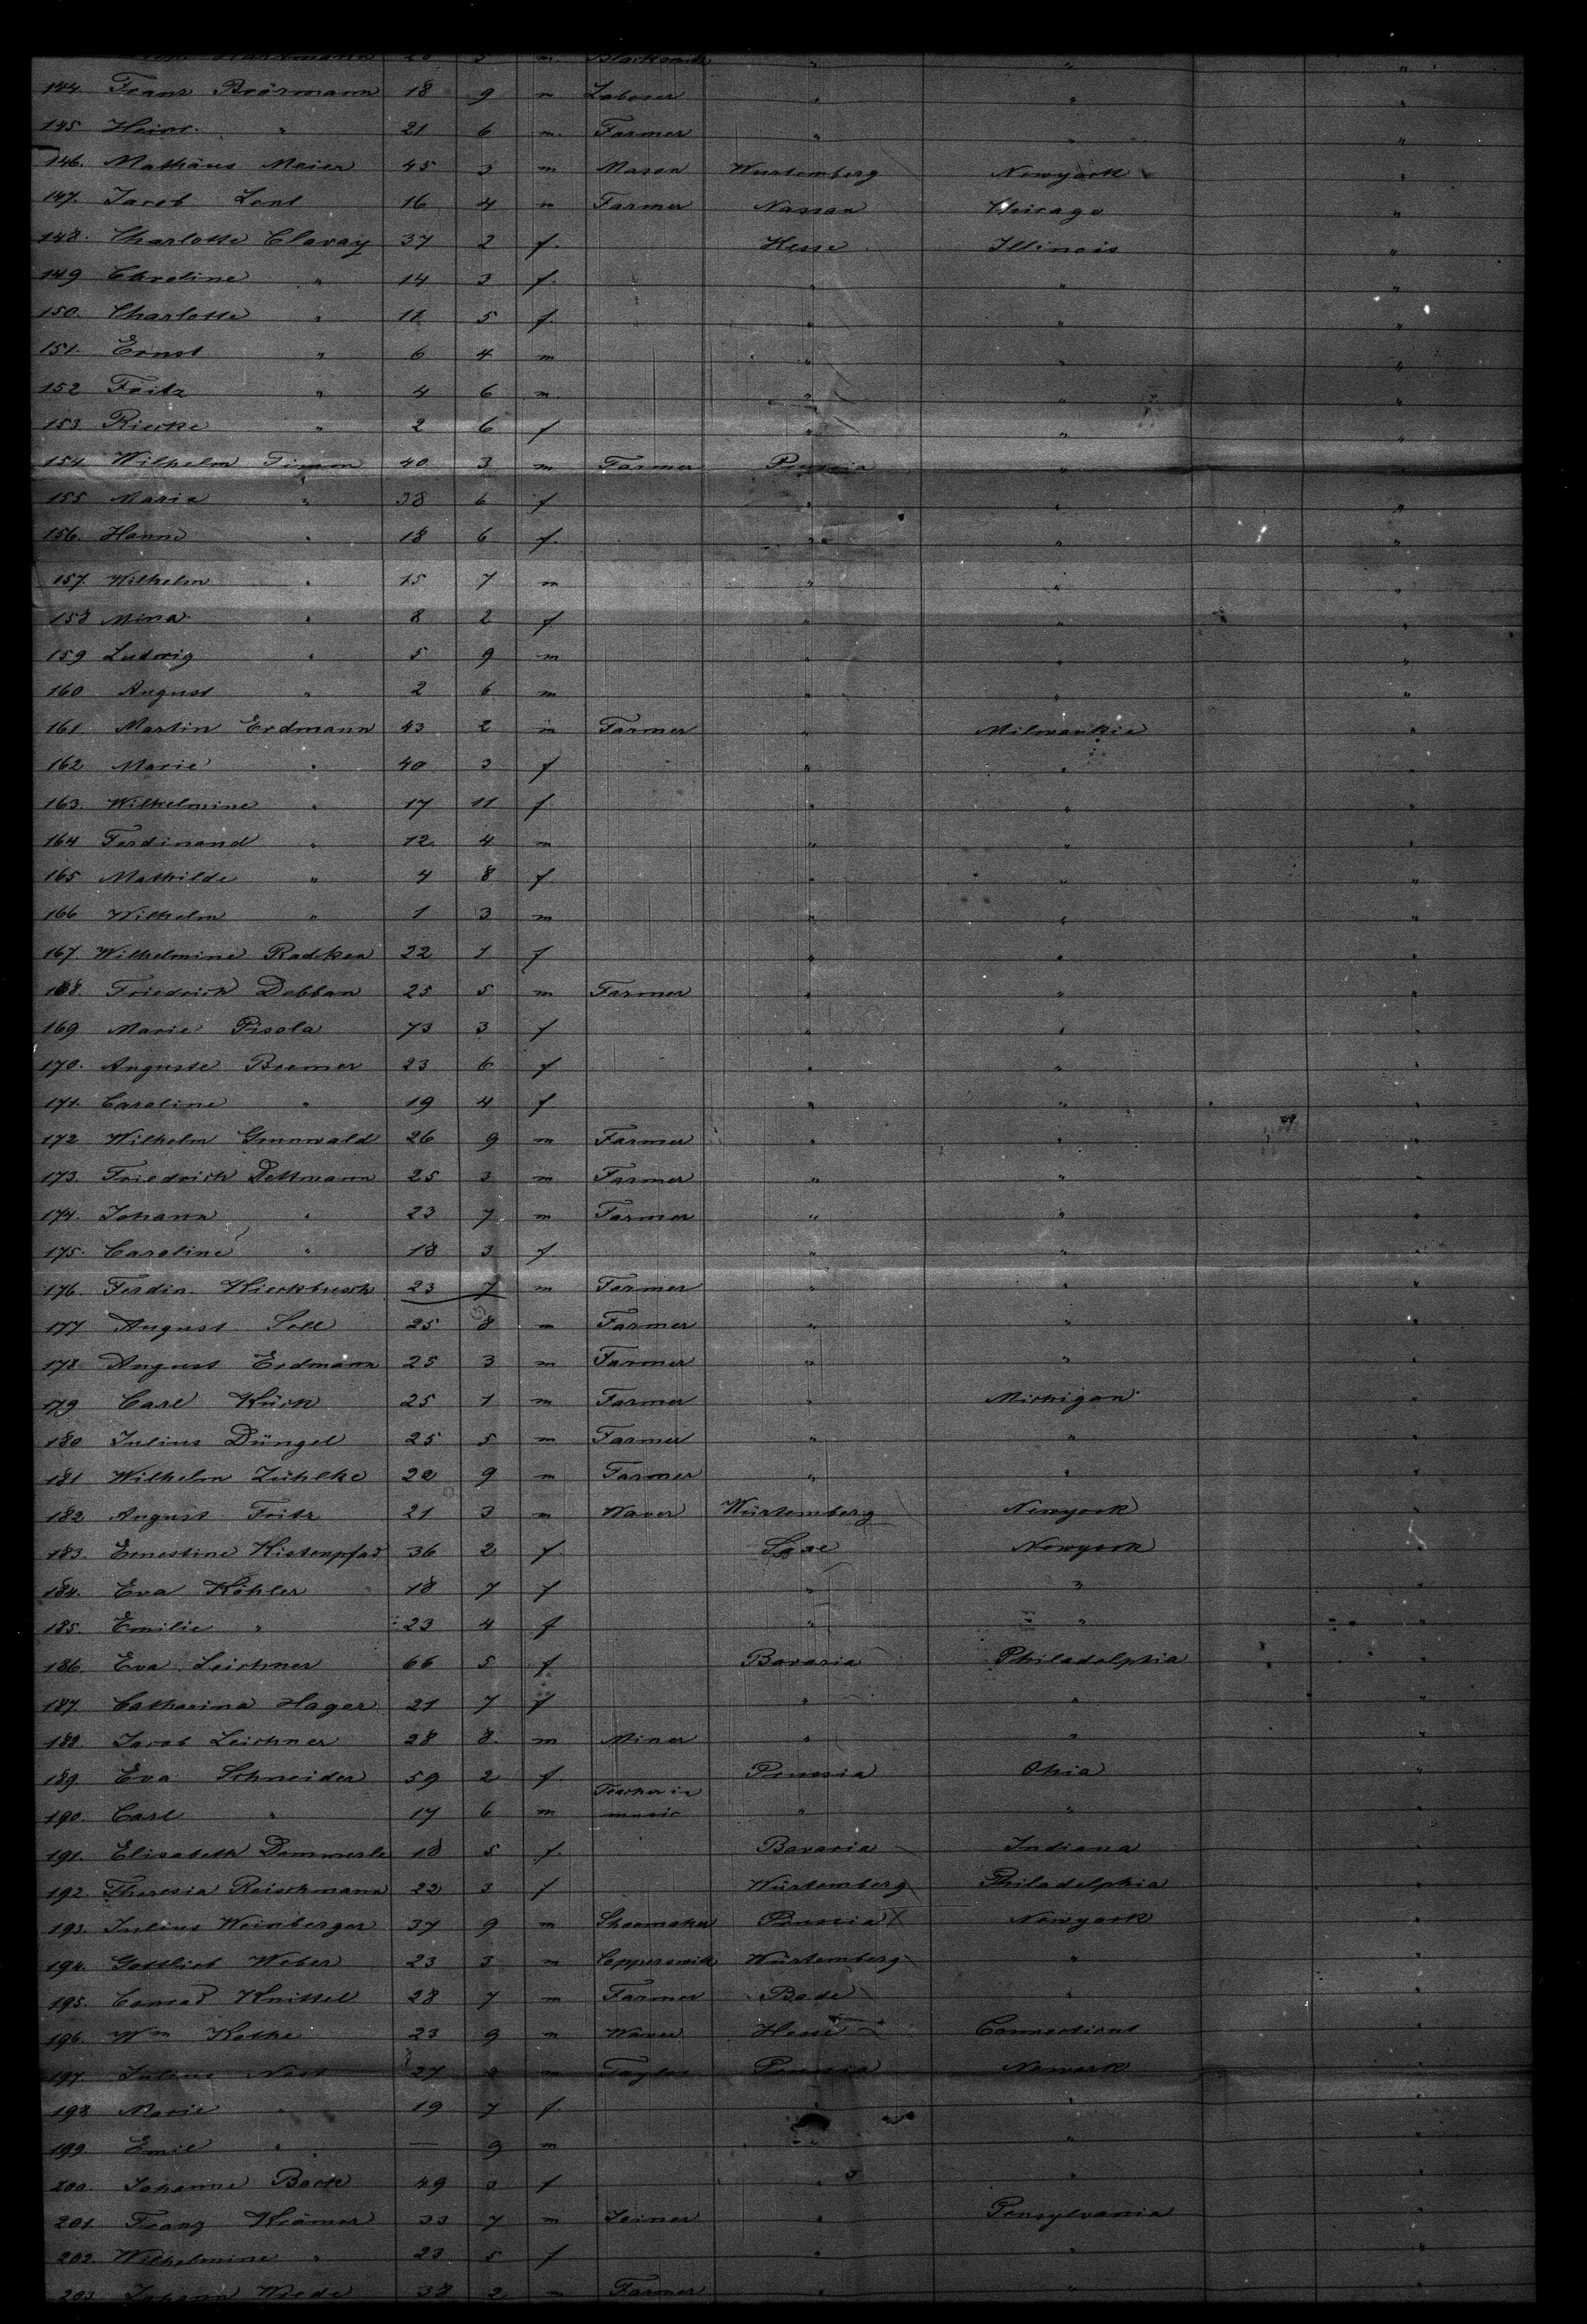 Hartmann 20 5 m Blacksmith " " "
144. Franz Brörmann 18 9 m Laborer " " "
145 Heinr. " 21 6 m. Farmer " " "
146. Mathäus Meier 45 3 m Mason Wurtemberg Newyork "
147. Jacob Lent 16 4 m Farmer Nassau Chicago "
148. Charlotte Clavay 37 2 f. Hesse Illinois "
149 Caroline " 14 3 f. " " "
150. Charlotte " 11 5 f. " " "
151. Ernst " 6 4 m " " "
152 Fritz " 4 6 m. " " "
153. Rieke " 2 6 f " " "
154 Wilhelm Timm 40 3 m Farmer Prussia " "
155 Maria " 38 6 f " " "
156. Hanne " 18 6 f. " " "
157. Wilhelm " 15 7 m " " "
158 Mina " 8 2 f " " "
159 Ludwig " 5 9 m " " "
160 August " 2 6 m " " "
161. Martin Erdmann 43 2 m Farmer " Milwaukie "
162 Marie " 40 3 f " " "
163. Wilhelmine " 17 11 f " " "
164 Ferdinand " 12 4 m " " "
165 Mathilde " 4 8 f. " " "
166 Wilhelm " 1 3 m " " "
167. Wilhelmine Radcken 22 1 f " " "
168. Friedrich Debban 25 5 m Farmer " " "
169 Marie Pisola 73 3 f " " "
170. Auguste Bremer 23 6 f " " "
171. Caroline " 19 4 f " " "
172 Wilhelm Grunwald 26 9 m Farmer " " "
173. Friedrich Dettmann 25 3 m Farmer " " "
174. Johann " 23 7 m Farmer " " "
175. Caroline " 18 3 f. " " "
176. Ferdin. Kieckbusch 23 7 m Farmer " " "
177 August Sell 25 8 m Farmer " " "
178 August Erdmann 25 3 m Farmer " " "
179 Carl Kück 25 1 m Farmer " Michigan "
180 Julius Düngel 25 5 m Farmer " " "
181 Wilhelm Zühlke 22 9 m Farmer " " "
182 August Fritz 21 3 m Waver Würtemberg Newyork "
183. Ernestine Kistenpfad 36 2 f. Saxe Newyork "
184. Eva Köhler 18 7 f " " "
185. Emilie " 23 4 f " " "
186. Eva Leichner 66 5 f Bavaria Philadelphia "
187. Catharina Hager 21 7 f " " "
188. Jacob Leichner 28 8. m Miner " " "
189 Eva Schneider 59 2 f. Prussia Ohio "
190. Carl " 17 6 m Teacher in music " " "
191. Elisabeth Dommerle 18 5 f. Bavaria Indiana "
192. Theresia Reischmann 22 3 f Würtemberg Philadelphia "
193. Julius Weinberger 37 9 m Shoemaker Prussia X Newyork "
194. Gottlieb Weber 23 3 m Coppersmith Würtemberg " "
195. Conrad Knittel 28 7 m Farmer Bade " "
196. Wm Kothe 23 9 m Waver Hesse Connecticut "
197. Julius Nest 27 2 m Taylor Prussia Newark "
198 Marie " 19 7 f. " " "
199. Emil " — 9 m " "
200. Johanne Bach 49 3 f " " "
201. Franz Krämer 33 7 m Joiner " Pensylvania "
202. Wilhelmine " 23 5 f " " "
203 Johann Wiede 38 2 m Farmer " " "